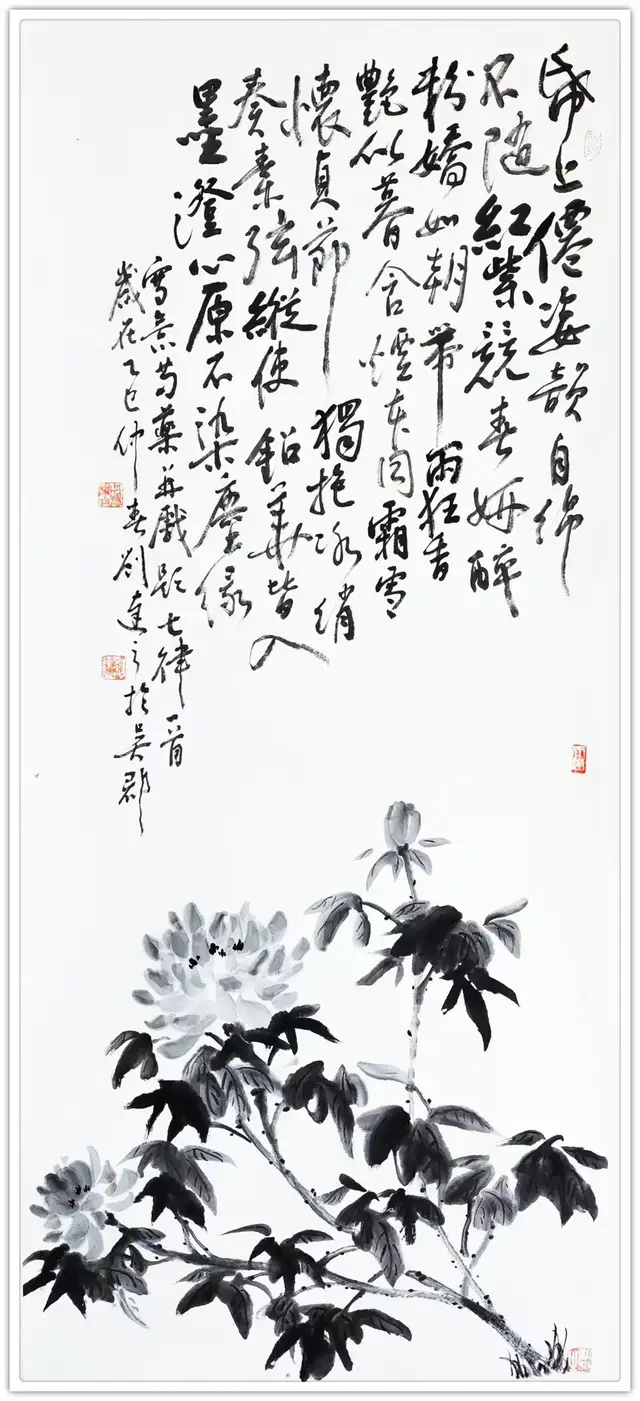 帋上僊姿韻自綿
不随紅紫競春妍醉
粉嬌如朝帶雨狂香
艷似暮含煙本同霜雪
懷貞節獨抱冰綃
奏素弦縱使鉛華皆入
墨澄心原不染塵緣
寫意芍藥并戲題七律一首
歲在乙巳仲春劉達之於吳郡